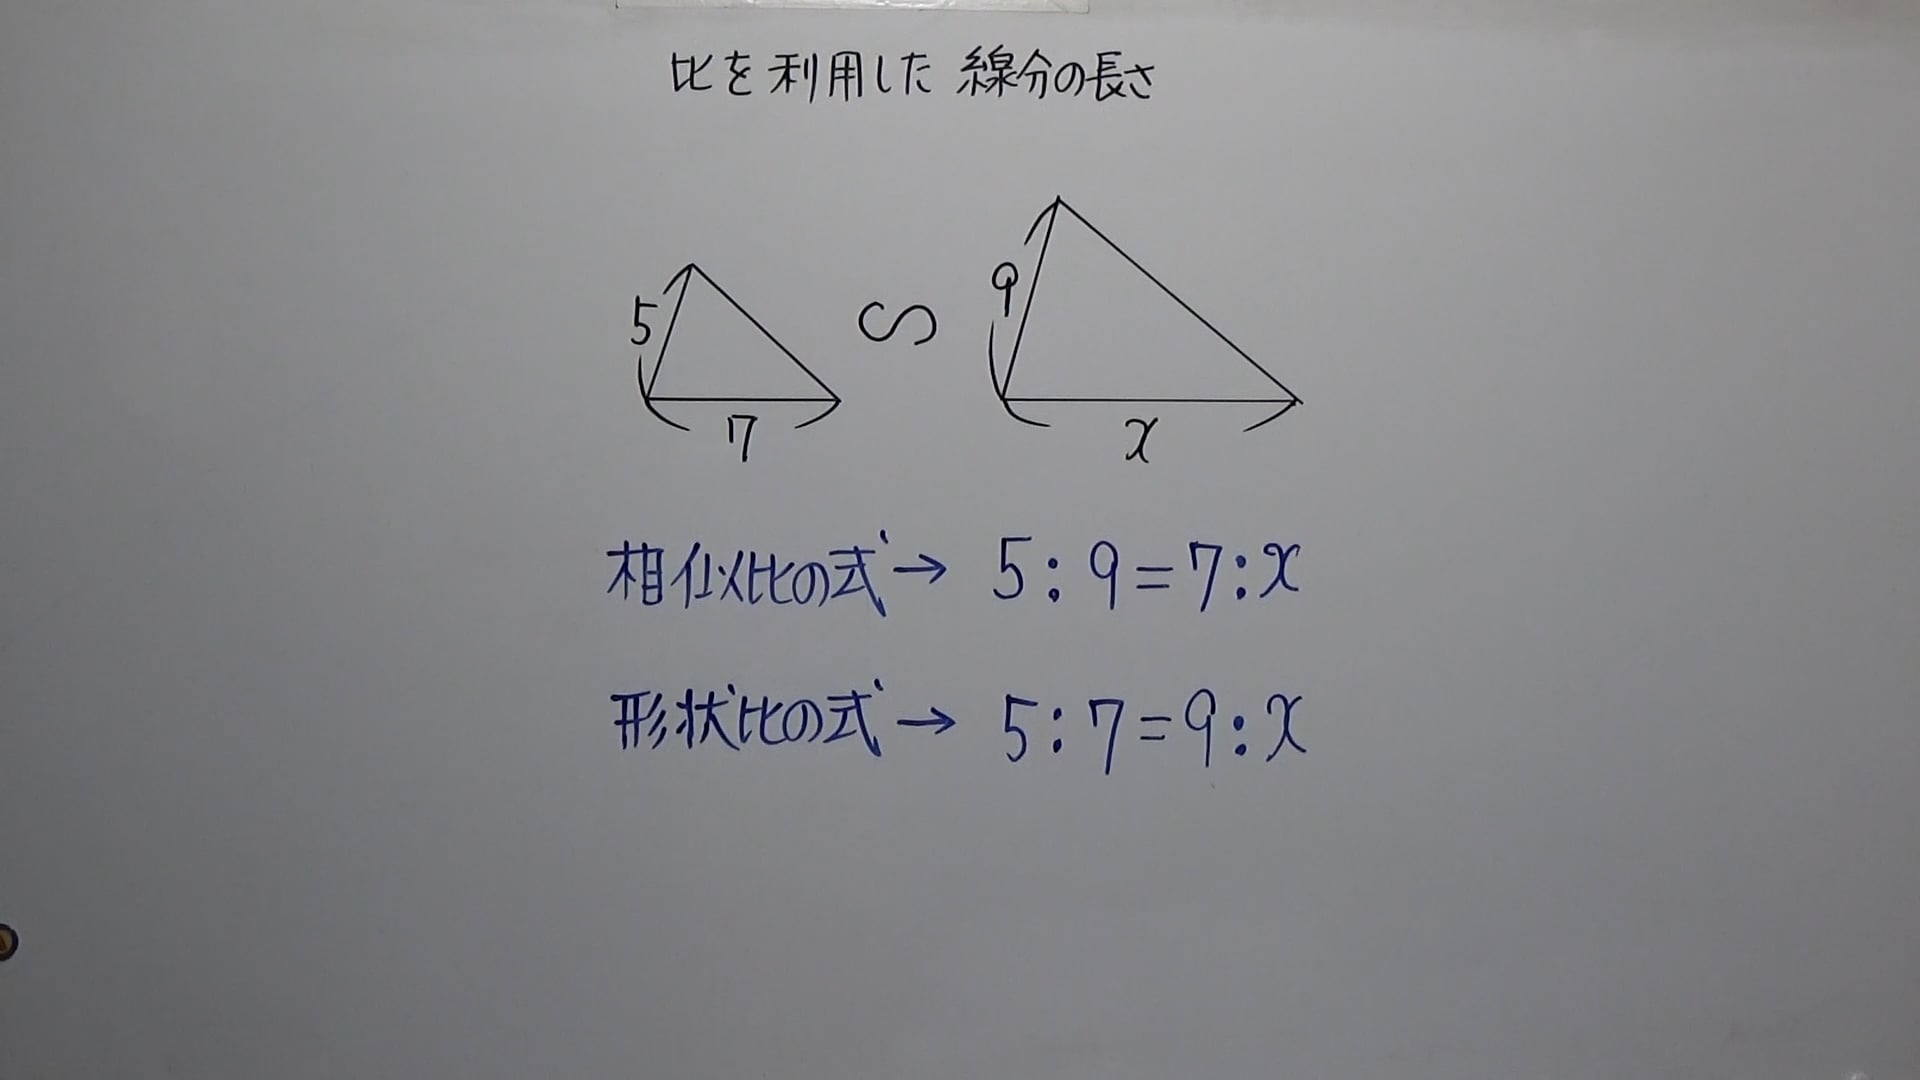 比を利用した線分の長さ
5
7
∽
9
x
相似比の式→ 5:9=7:x
形状比の式→ 5:7=9:x